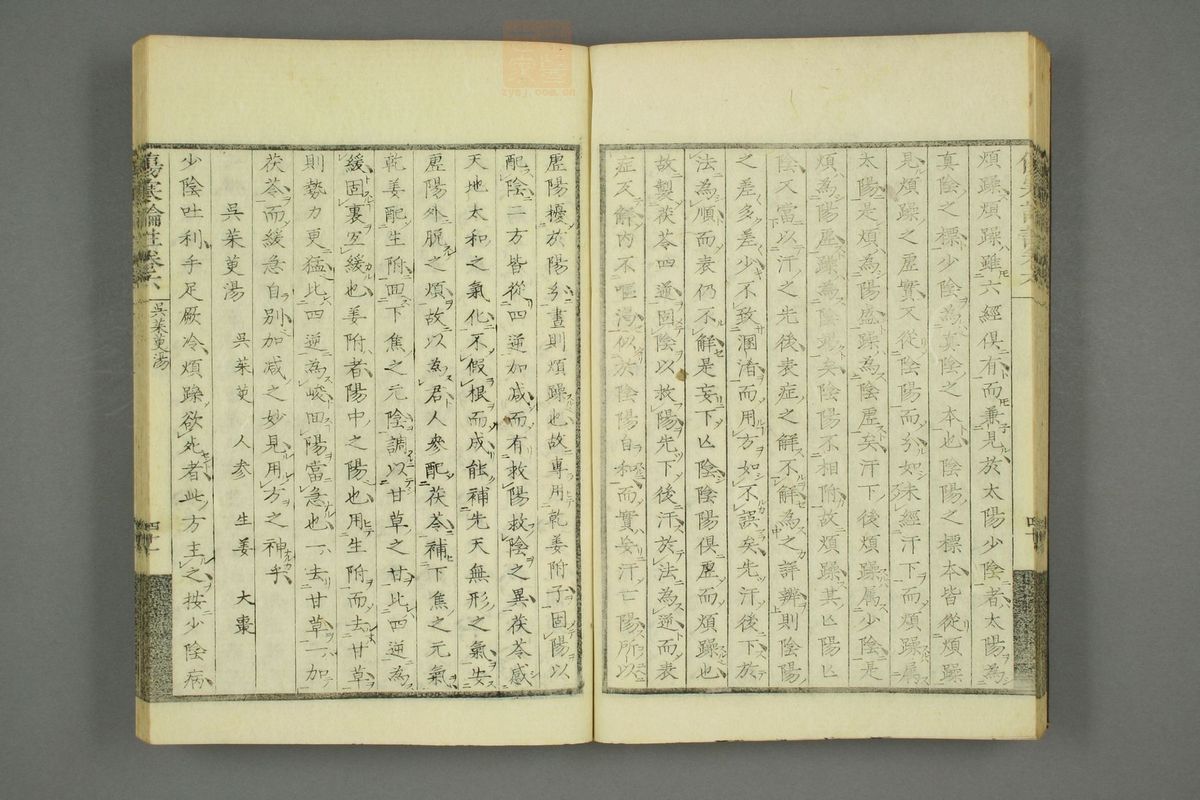 煩躁煩躁雖六經俱有而兼見於太陽少陰者太陽為
真陰之標少陰為真陰之本也陰陽之標本皆從煩躁
見煩躁之虛實又從陰陽而分如未經汗下而煩躁屬
太陽是煩為陽盛躁為陰虛矣汗下後煩躁屬少陰是
煩為陽虛躁為陰竭矣陰陽不相附故煩躁其亡陽亡
陰又當以汗之先後表症之解不解為之詳辨則陰陽
之差多差少不致溷淆而用方如不誤矣先汗後下於
法為順而表仍不解是妄下亡陰陰陽俱虛而煩躁也
故製茯苓四逆固陰以救陽先下後汗於法為逆而表
症反解內不嘔渴似於陰陽自和而實妄汗亡陽所以
虛陽擾於陽分晝則煩躁也故專用乾姜附子固陽以
配陰二方皆從四逆加減而有救陽救陰之異茯苓感
天地太和之氣化不假根而成能補先天無形之氣安
虛陽外脫之煩故以為君人參配茯苓補下焦之元氣
乾姜配生附回下焦之元陰調以甘草之甘比四逆為
緩固裏宜緩也姜附者陽中之陽也用生附而去甘草
則勢力更猛比四逆為峻回陽當急也一去甘草一加
茯苓而緩急自別加減之妙見用方之神乎
吳茱萸湯
吳茱萸 人參 生姜 大棗
少陰吐利手足厥冷煩躁欲死者此方主之按少陰病
傷寒論註卷六 吳茱萸湯 四十一